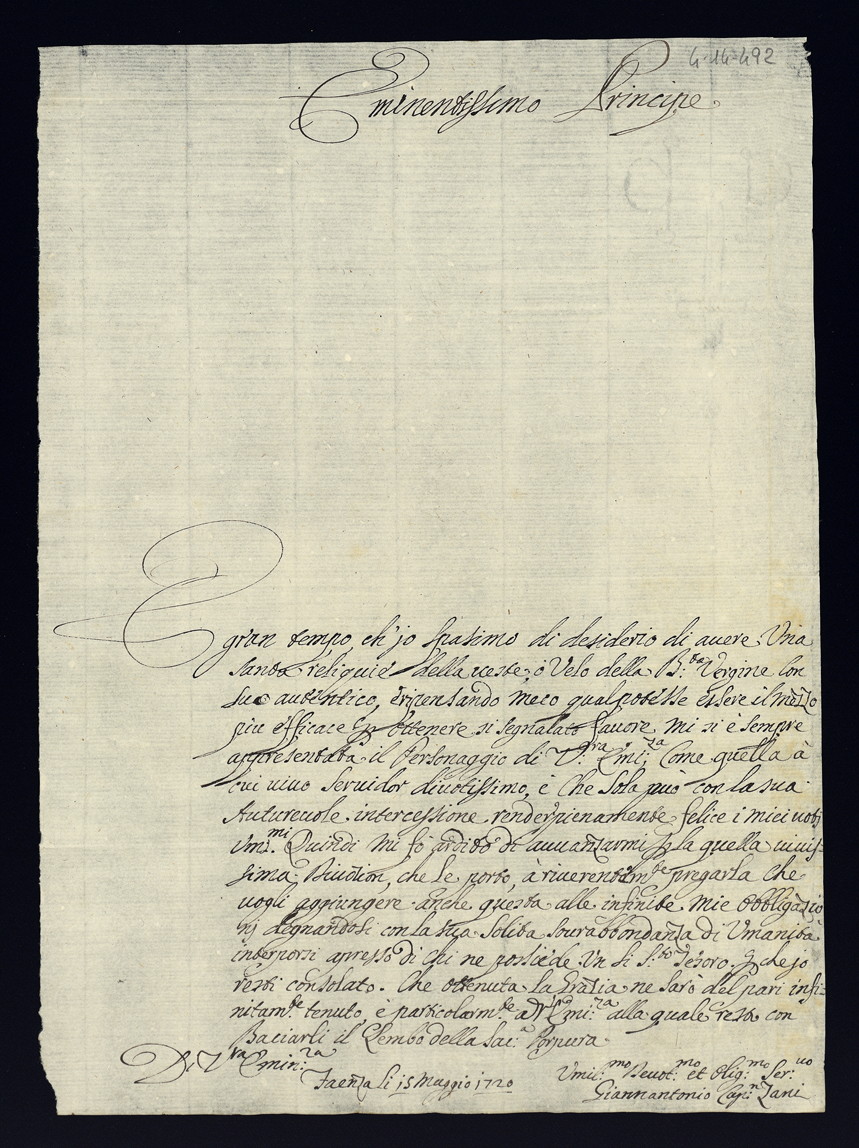 4-14-492
Eminentissimo Principe
E gran tempo, ch'jo spasimo di desiderio di auere Una
santa reliquie della ueste, ò Velo della B:ta Vergine con
suo autentico, e ripensando meco qual potesse essere il mezzo
piu efficace p ottenere si segnalato fauore, mi si è sempre
appresentata il Personaggio di V:ra Emi:za Come quella à
cui uiuo seruidor diuotissimo, è che sola può con la sua
Autoreuole intercessione render pienamente felice i miei uoti
Um:mi Quindi mi fò ardito di auuanzarmi p la quella uiuis-
sima che le porto, à riuerentem:te pregarla che
uogli aggiungere anche questa alle infinite mie obbligazio
nj degnandosi con la sua solita sourabbondanza di Umanità
interporsi apresso di chi ne possiede Un si S:to Tesoro, p che jo
resti consolato. Che ottenuta la Grazia ne sarò del pari infi-
nitam:te tenuto, è particolarm:te a V:ra Emi:za alla quale resto con
Baciarli il Lembo della Sac:a Porpora.
Di V:ra Emin:za
Faenza li 15 Maggio 1720
Umil:mo Deuot:mo et Oblig:mo Ser:uo
Giannantonio Cap:n Zani